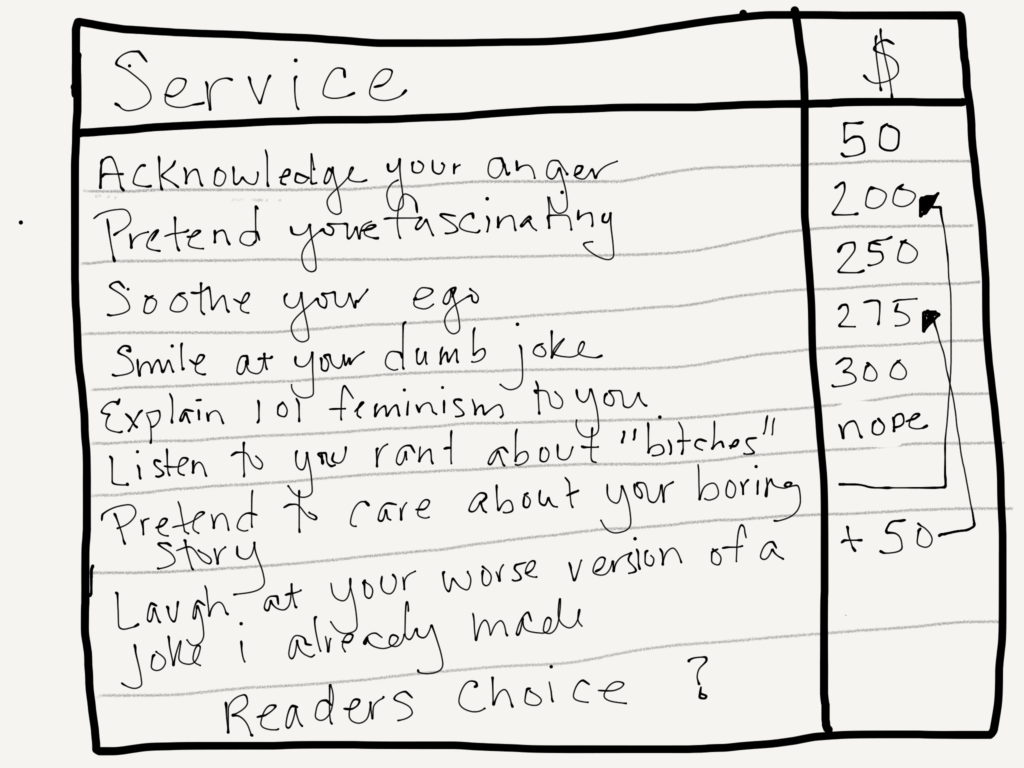 Service $
Acknowledge your anger 50
Pretend youre fascinating 200
Soothe your ego 250
Smile at your dumb joke 275
Explain 101 feminism to you 300
Listen to you rant about "bitches" nope
Pretend to care about your boring
story
Laugh at your worse version of a + 50
joke i already made
Readers Choice ?